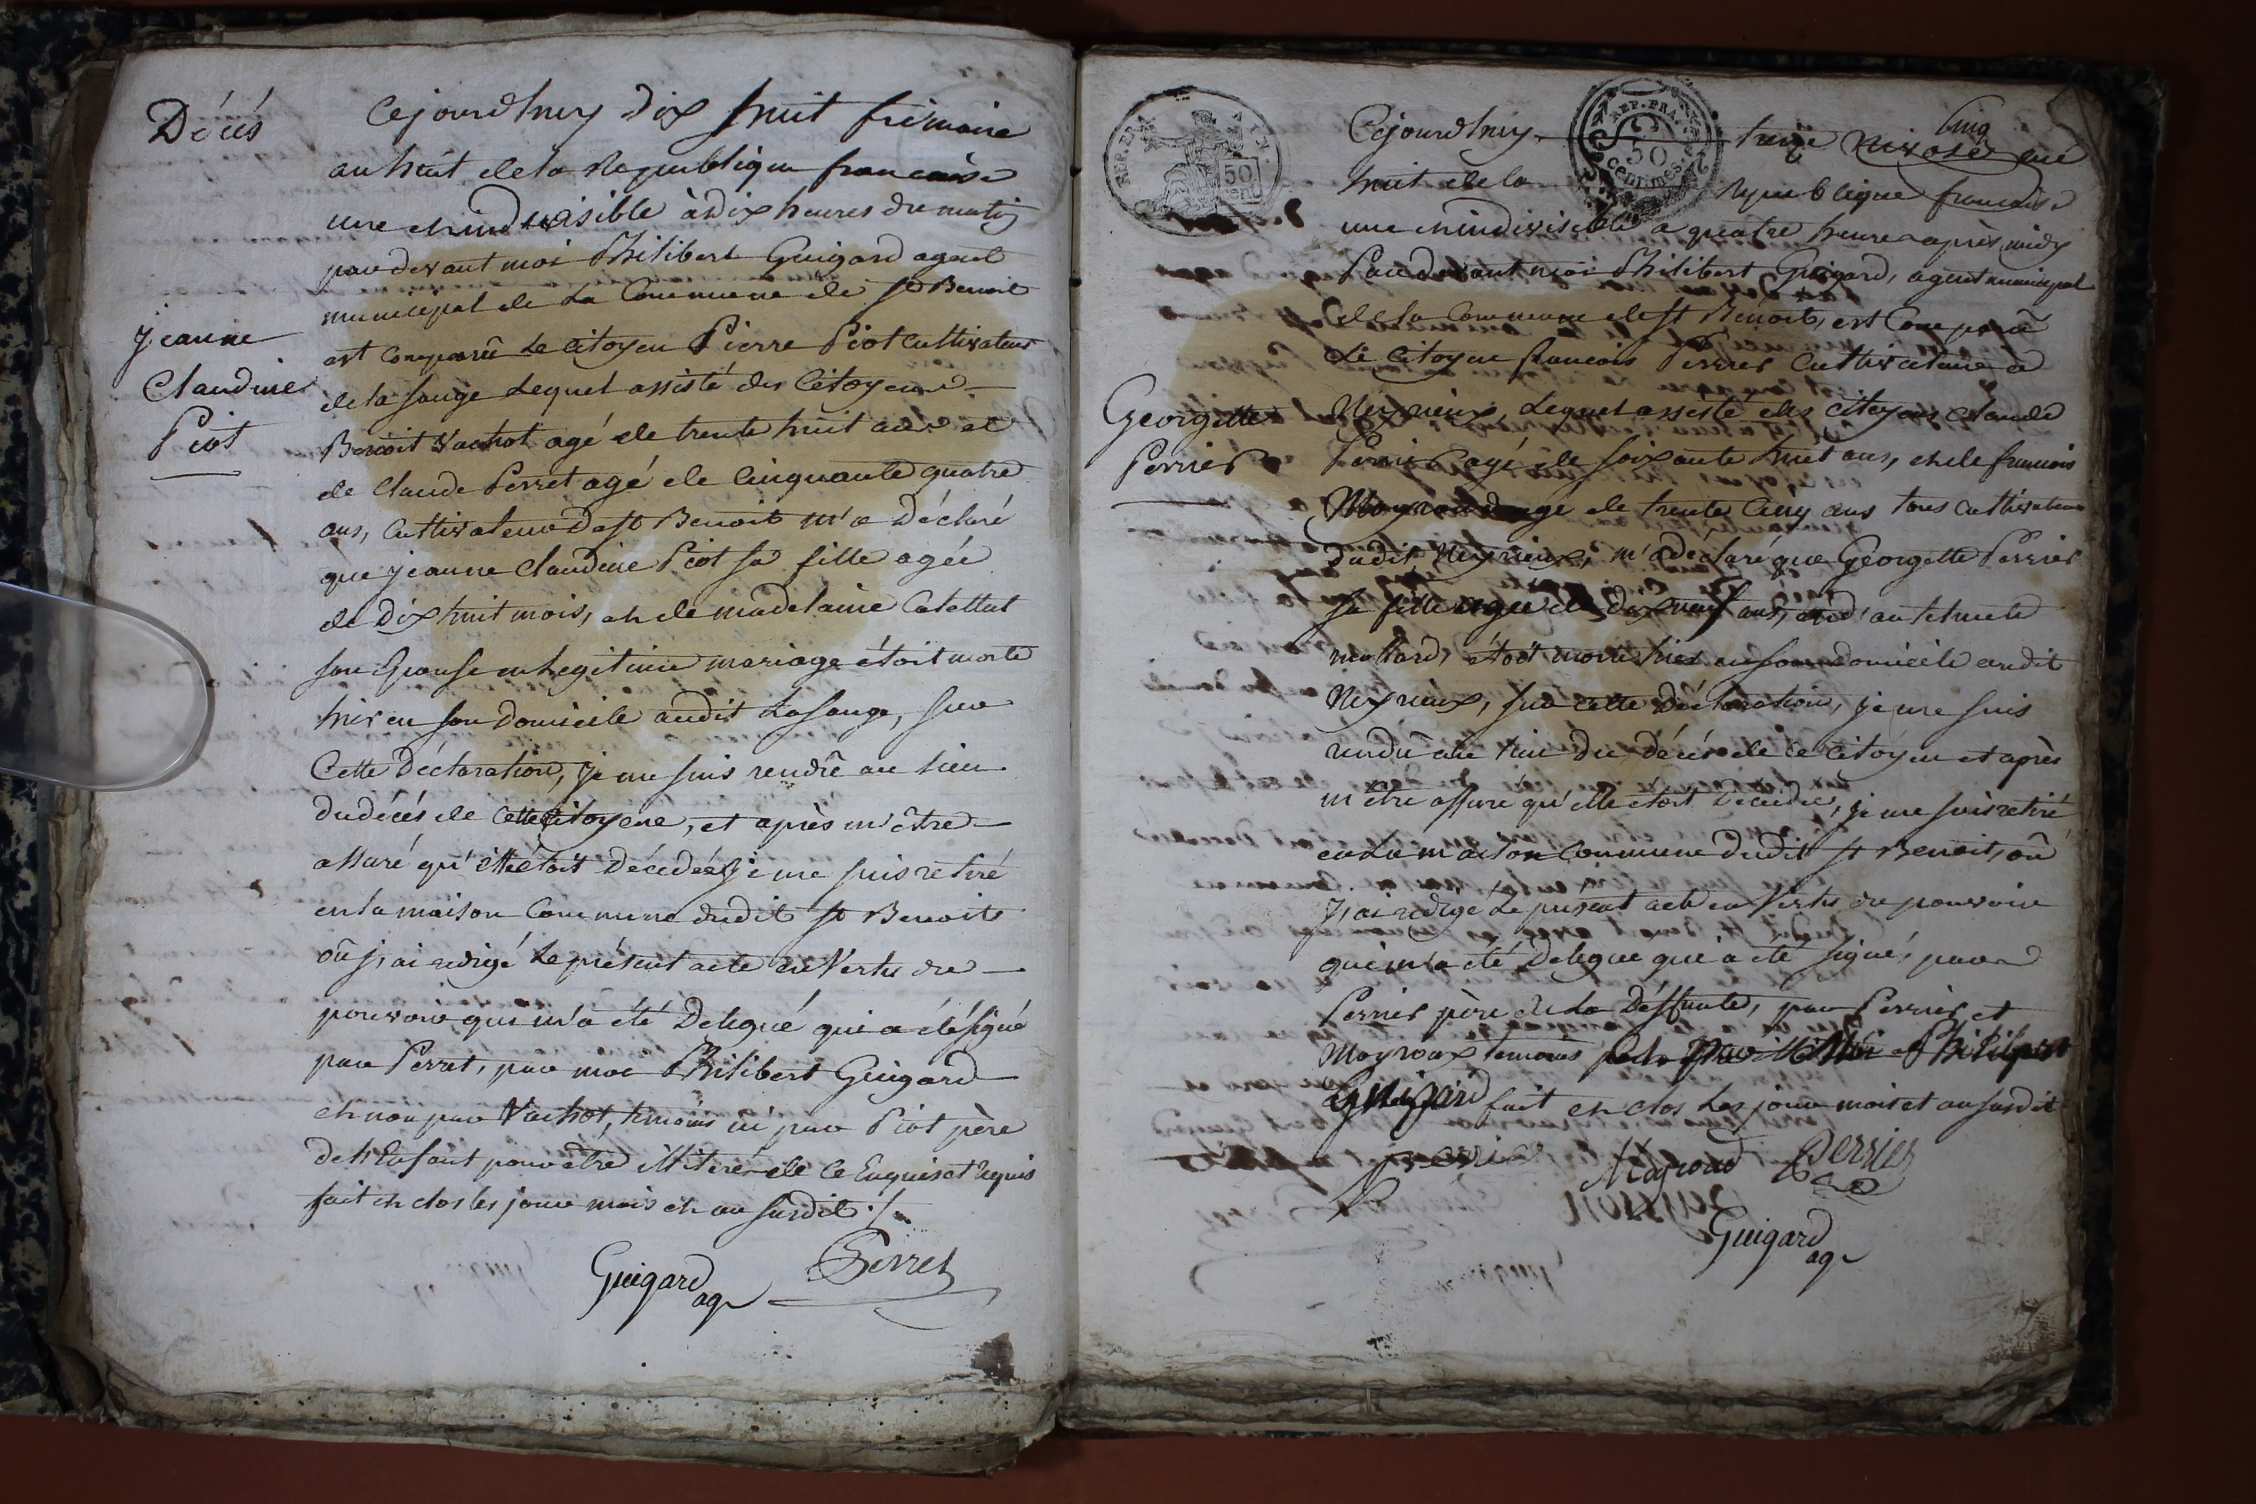 Décés
Cejourdhuy dix huit frimaire
an huit de la Republique francaise
une et indivisible à dix heures du matin
pardevant moi Philibert Guigard agent
municipal de La Commune de St Benoit
est comparû Le Citoyen Pierre Piot Cultivateur
Jeanne
Claudine
Piot
de la Sauge Lequel assisté des Citoyens
Benoit Vachot agé de trente huit ans et
de Claude Perret agé de Cinquante quatre
ans, Cultivateurs de St Benoit m'a Déclaré
que jeanne Claudine Piot sa fille agée
de Dix huit mois, et de madelaine
son Epouse en Legitime mariage étoit morte
hier en son Domicile audit La Sauge, sur
Cette Déclaration, je me suis rendû au Lieu
du décés de Cette Citoyene, et après m'être
assuré qu'elle étoit Décedée, je me suis retiré
en la maison Commune dudit St Benoit
où j'ai redigé Le présent acte en Vertu du
pouvoir qui m'a été Delegué qui a été signé
par Perret, par moi Philibert Guigard
et non par Vachot, temoins ni par Piot père
de l'Enfant pour être illiteré de Ce Enquis et Requis
fait et clos les jour mois et an susdit ./.
Guigard
ag
Perret
REP. FRA.
50
CENT
REP. FRA.
50
Centimes
Cejourdhuy treize Nivose an
huit de la Republique francaise
une et indivisible a quatre heures après midy
Pardevant moi Philibert Guigard, agent municipal
de la Commune de St Benoit, est Comparû
Le Citoyen francois Perrier Cultivateur à
Georgette
Perrier
Neyrieux, Lequel assisté des Citoyens Claude
Perrier agé de soixante huit ans, et de francois
Mayroud agé de trente Cinq ans tous Cultivateurs
dudit Neyrieux, m'a declaré que Georgette Perrier
sa fille agée de dix neuf ans, et d'anthelmete
étoit morte hier en son Domicile audit
Neyrieux, sur cette Déclaration, je me suis
rendû au Lieu du décés de ce Citoyen et après
m'être assuré qu'elle étoit Decedée, je me suis retiré
en La maison Commune dudit St Benoit, où
j'ai redigé Le present acte en Vertu du pouvoir
qui m'a été Delegué qui a été signé, par
Perrier père de La Deffunte, par Perrier et
Mayroux temoins Philibert
Guigard fait et clos Les jour mois et an susdit
Perrier
Mayroud
Perrier
Guigard
ag